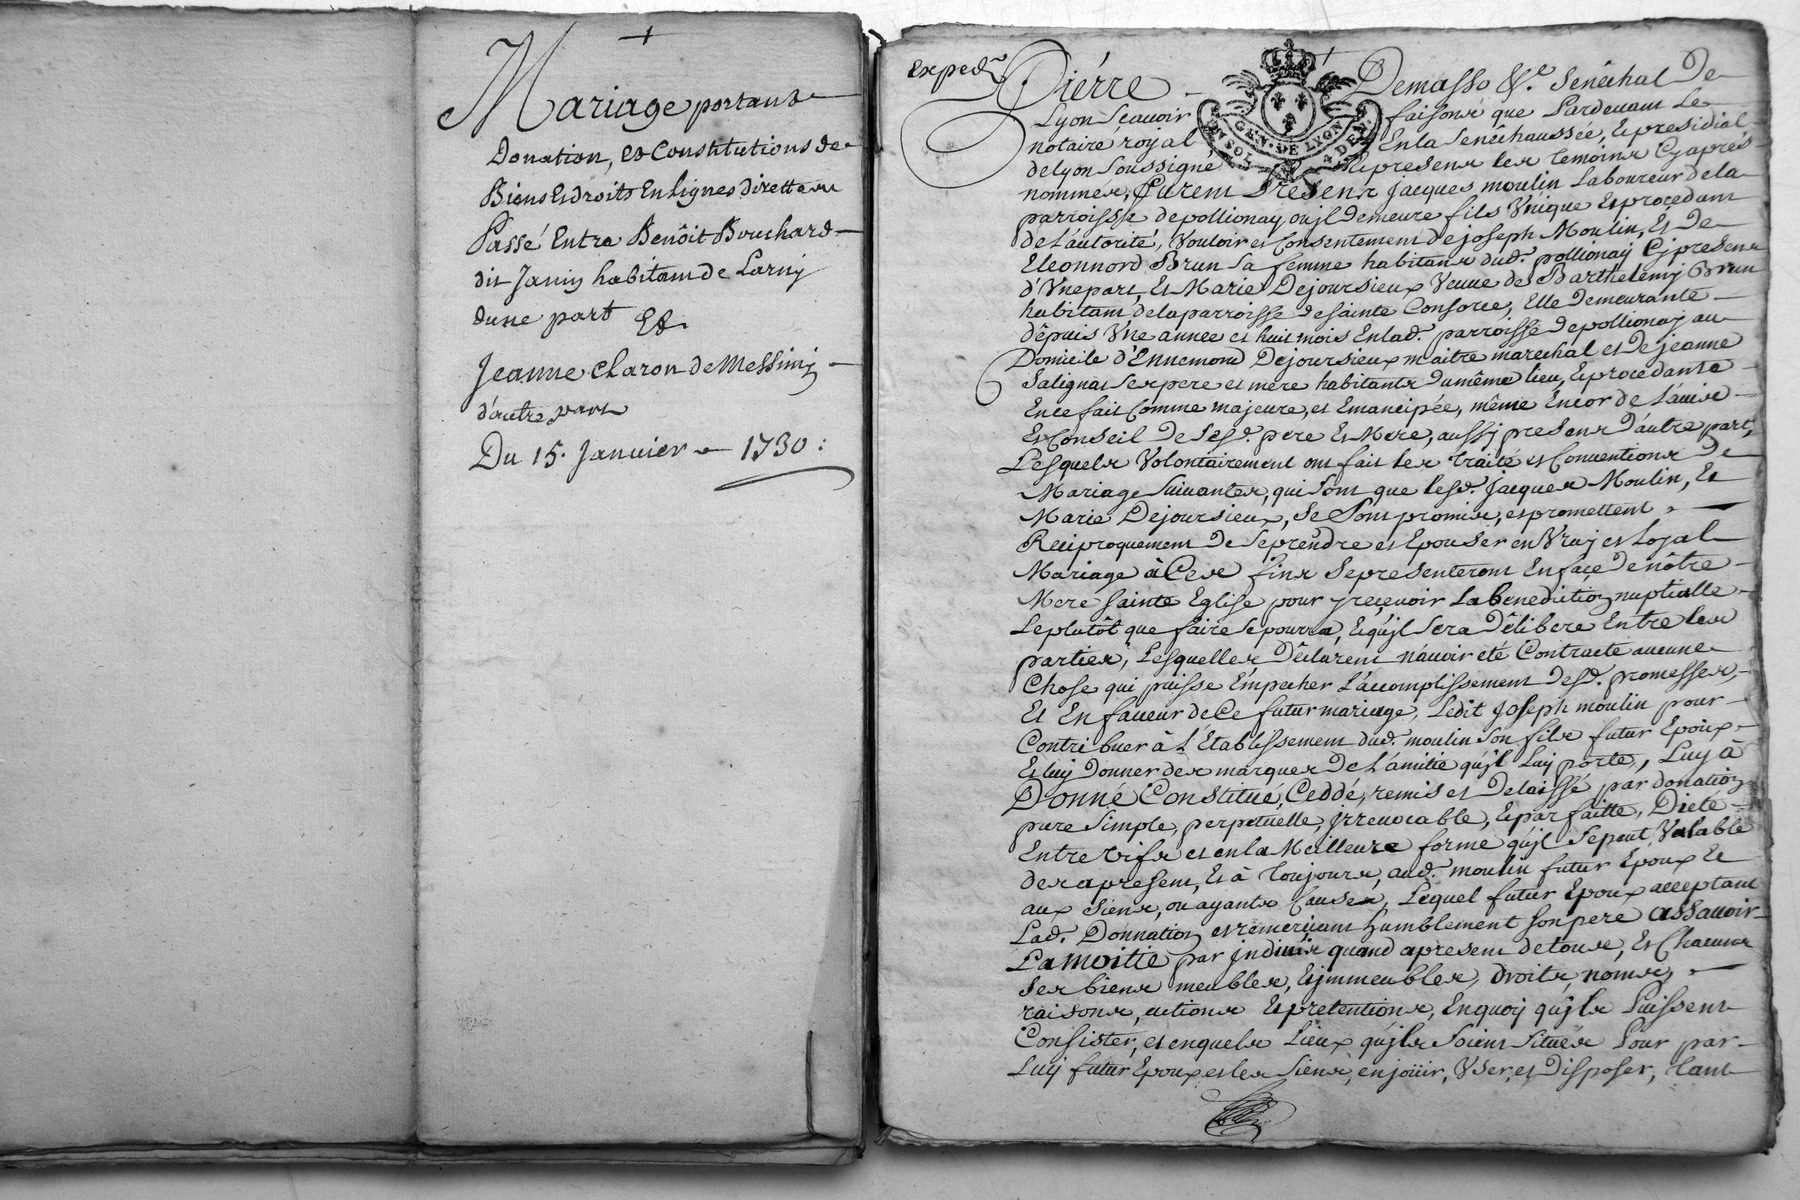 Mariage portant
Donation, et Constitutions de
Biens Et droits En lignes directte
Passé Entre Benôit Bouchard
dit Janin habitant de Larny
dune part Et
Jeanne Charon de Messimy
d'autre part
Du 15. Janvier 1730 :
Exped.
Pierre Demasso &c. Senêchal De
Lyon Scavoir faisons que Pardevant Le
notaire royal En la Senêchaussée, Et presidial
de Lyon Soussigné Et presens les temoins Cy aprés
nommés, furent Presens Jacques moulin Laboureur de la
parroisse de pollionay ou jl Demeure fils Vnique Et procedant
de L'autorité, Vouloir et Consentement de joseph Moulin, Et De
Eleonnord Brun Sa femme habitans dud. pollionay Cy presens
d'Vne part, Et Marie Dejoursieux Veuve de Barthelemy Brun
habitant de la parroisse de Sainte Consorce, Elle Demeurante
dépuis Vne année et huit mois En lad. parroisse de pollionay au
Domicile d'Ennemond Dejoursieux maitre marechal et De jeanne
Salignat Ses pere et mere habitants du même lieu, Et procedante
En ce fait Comme majeure, et Emancipée, même Encor de L'avis
Et Conseil De Sesd. pere Et Mere, aussy presens D'autre part,
Lesquels Volontairement ont fait les traité et Conventions De
Mariage Suivantes, qui Sont que lesd. Jacques Moulin, Et
Marie Dejoursieux, Se Sont promis, et promettent
Reciproquement De Se prendre et Epouser en Vray et Loyal
Mariage à Ces fins Se presenteront En face De nôtre
Mere Sainte Eglise pour y recevoir La Benediction nuptialle
Le plutôt que faire Se pourra, Et qu'jl Sera Déliberé Entre les
parties, Lesquelles Déclarent n'avoir eté Contracté aucune
Chose qui puisse Empecher L'accomplissement Desd. promesses,
Et En faveur de Ce futur mariage, Ledit Joseph moulin pour
Contribuer à L'Etablissement dud. moulin Son fils futur Epoux
Et luy Donner des marques De L'amitié qu'jl Luy porte, Luy à
Donné Constitué, Ceddé, remis et Delaissé par donation
pure Simple, perpetuelle, jrrevocable, Et parfaitte, Ditte
Entre vifs et en la Meilleure forme qu'jl Se peut Valable
des apresent, Et à toujours, aud. moulin futur Epoux Et
aux Siens, ou ayants Causes, Lequel futur Epoux acceptant
Lad. Donnation et remerciant humblement Son pere assavoir
La moitié par jndivis quand apresent de tous, Et Chacuns
Ses biens meubles, Et jmmeubles, droits, noms,
raisons, actions Et pretentions, En quoy qu'jls Puissent
Consister, et en quels Lieux qu'jls Soient Situés Pour par
Luy futur Epoux et les Siens, en joüir, Vser, et Disposer, tant
GEN. DE LYON
VN SOL 4 DEN.